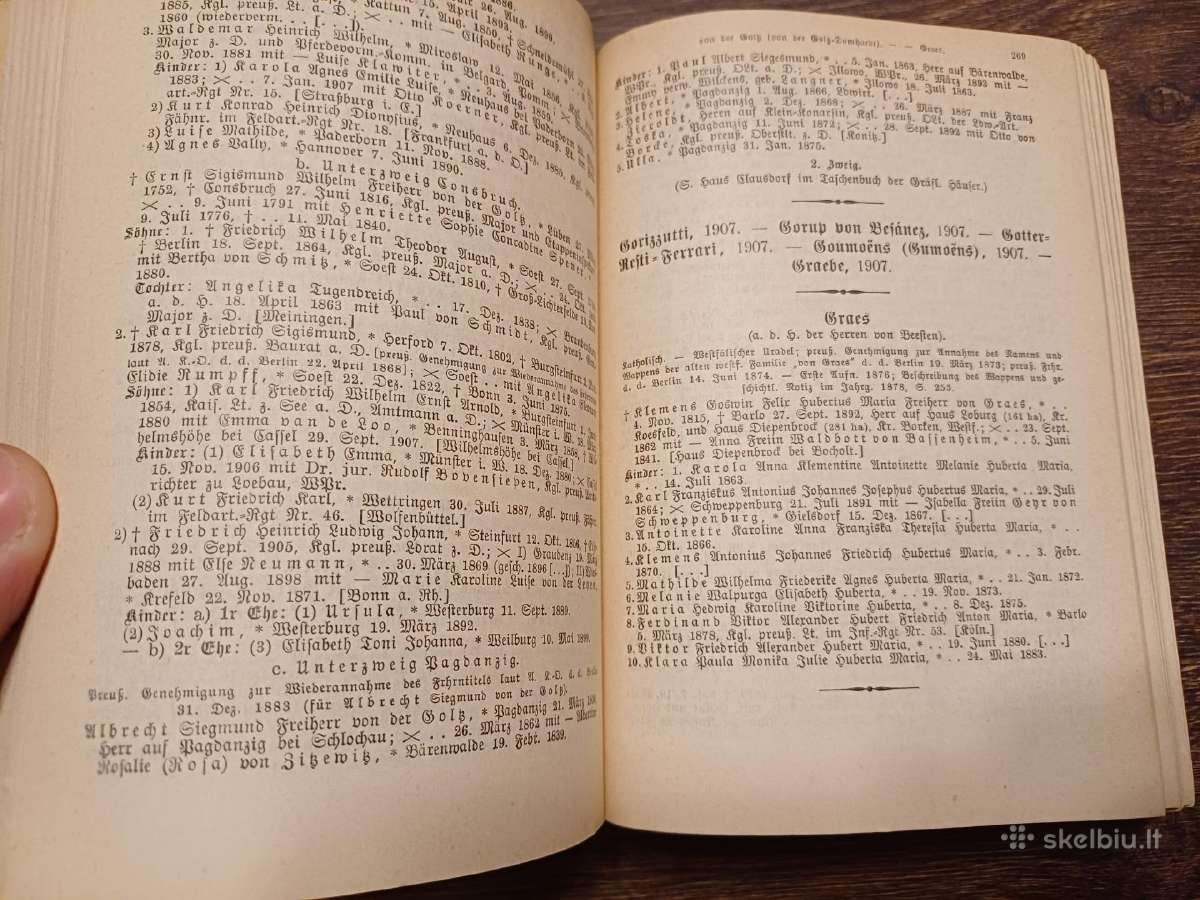 1885, Kgl. preuß. Lt. a. D.;
1860 (wiederverm. . . [. . .]). 
3. Waldemar Heinrich Wilhelm, * Miroslaw 12. Mai 1856, Kgl.
Major z. D. und Pferdevorm.-Komm. in Belgard, Pomm.
30. Nov. 1881 mit — Luise Klawiter, * 3. Aug. 1859.
Kinder: 1) Karola Agnes Emilie Luise, * Neuhaus bei Paderborn
1883; ⚔ . . 7. Jan. 1907 mit Otto Koerner, Kgl. preuß. Lt. im
art.-Rgt Nr. 15. [Straßburg i. E.]
2) Kurt Konrad Heinrich Dionysius, * Neuhaus 6. Dez. 1885, Kgl. preuß.
Fähnr. im Feldart.-Rgt Nr. 18. [Frankfurt a. d. O.]
3) Luise Mathilde, * Paderborn 11. Nov. 1888.
4) Agnes Vally, * Hannover 7. Juni 1890.
b. Unterzweig Consbruch.
† Ernst Sigismund Wilhelm Freiherr von der Goltz, * Lüben 27.
1752, † Consbruch 27. Juni 1816, Kgl. preuß. Major und Etappeninsp
⚔ . . 9. Juni 1791 mit Henriette Sophie Conradine Spener, *
9. Juli 1776, † . . 11. Mai 1840.
Söhne: 1. † Friedrich Wilhelm Theodor August, * Soest 27. Sept.
† Berlin 18. Sept. 1864, Kgl. preuß. Major a. D.; ⚔ . . 24. Okt.
mit Bertha von Schmitz, * Soest 24. Okt. 1810, † Groß-Lichterfelde
1880.
Tochter: Angelika Tugendreich, * . . 17. Dez. 1838; ⚔ Brandenburg
a. d. H. 18. April 1863 mit Paul von Schmidt, Kgl. preuß.
Major z. D. [Meiningen.]
2. † Karl Friedrich Sigismund, * Herford 7. Okt. 1802, † Burgsteinfurt
1878, Kgl. preuß. Baurat a. D. [preuß. Genehmigung zur Wiederannahme des
laut A. K.-O. d. d. Berlin 22. April 1868]; ⚔ Soest . . mit Angelika
Elidie Rumpff, * Soest 22. Dez. 1822, † Bonn 3. Juni 1875.
Söhne: 1) Karl Friedrich Wilhelm Ernst Arnold, * Burgsteinfurt 1. Juni
1854, Kais. Lt. z. See a. D., Amtmann a. D.; ⚔ Münster i. W. 18.
1880 mit Emma van de Loo, * Benninghausen 3. März 1858, †
helmshöhe bei Cassel 29. Sept. 1907. [Wilhelmshöhe bei Cassel]
Kinder: (1) Elisabeth Emma, * Münster i. W. 18. Dez. 1880; ⚔
15. Nov. 1906 mit Dr. jur. Rudolf Bovensiepen, Kgl. preuß.
richter zu Loebau, WPr.
(2) Kurt Friedrich Karl, * Wettringen 30. Juli 1887, Kgl. preuß. Fähnr.
im Feldart.-Rgt Nr. 46. [Wolfenbüttel.]
2) † Friedrich Heinrich Ludwig Johann, * Steinfurt 12. Okt. 1856, †
nach 29. Sept. 1905, Kgl. preuß. Ldrat z. D.; ⚔ I) Graudenz 19.
1888 mit Else Neumann, * . . 30. März 1869 (gesch. 1896 [. . .]); II)
baden 27. Aug. 1898 mit — Marie Karoline Luise von der Leyen,
* Krefeld 22. Nov. 1871. [Bonn a. Rh.]
Kinder: a) 1r Ehe: (1) Ursula, * Westerburg 11. Sept. 1889.
(2) Joachim, * Westerburg 19. März 1892.
— b) 2r Ehe: (3) Elisabeth Toni Johanna, * Weilburg 10. Mai 1899.
c. Unterzweig Pagdanzig.
Preuß. Genehmigung zur Wiederannahme des Frhrntitels laut A. K.-O. d. d. Berlin
31. Dez. 1883 (für Albrecht Siegmund von der Goltz).
Albrecht Siegmund Freiherr von der Goltz, * Pagdanzig 21. März
Herr auf Pagdanzig bei Schlochau; ⚔ . . 26. März 1862 mit — Albertine
Rosalie (Rosa) von Zitzewitz, * Bärenwalde 19. Febr. 1839.
von der Goltz (von der Goltz-Domhardt). — — Graes. 269
Kinder: 1. Paul Albert Siegesmund, * . . 5. Jan. 1863, Herr auf Bärenwalde,
WPr., Kgl. preuß. OLt. a. D.; ⚔ Illowo, WPr., 26. März 1892 mit —
Emmy verw. Wilckens, geb. Langner, * Illowo 18. Juli 1863.
2. Albert, * Pagdanzig 1. Aug. 1866, Ldwirt. [. . .]
3. Helene, * Pagdanzig 2. Dez. 1868; ⚔ . . 26. März 1887 mit Franz
Zierolbt, Herrn auf Klein-Konarsin, Kgl. preuß. OLt. der Ldw.-Art.
4. Toska, * Pagdanzig 11. Juni 1872; ⚔ . . 28. Sept. 1892 mit Otto von
Borcke, Kgl. preuß. Oberstlt. z. D. [Konitz.]
5. Ulla, * Pagdanzig 31. Jan. 1875.
2. Zweig.
(S. Haus Clausdorf im Taschenbuch der Gräfl. Häuser.)
Gorizzutti, 1907. — Gorup von Besánez, 1907. — Gotter-
Resti-Ferrari, 1907. — Goumoëns (Gumoëns), 1907. —
Graebe, 1907.
Graes
(a. d. H. der Herren von Beesten).
Katholisch. — Westfälischer Uradel; preuß. Genehmigung zur Annahme des Namens und
Wappens der alten westf. Familie „von Graes“ d. d. Berlin 19. März 1873; preuß. Frhr.
d. d. Berlin 14. Juni 1874. — Erste Aufn. 1876; Beschreibung des Wappens und ge-
schichtl. Notiz im Jahrg. 1878, S. 253.
† Klemens Goswin Felix Hubertus Maria Freiherr von Graes, * . .
4. Nov. 1815, † Barlo 27. Sept. 1892, Herr auf Haus Loburg (161 ha), Kr.
Koesfeld, und Haus Diepenbrock (281 ha), Kr. Borken, Westf.; ⚔ . . 23. Sept.
1862 mit — Anna Freiin Waldbott von Bassenheim, * . . 5. Juni
1841. [Haus Diepenbrock bei Bocholt.]
Kinder: 1. Karola Anna Klementine Antoinette Melanie Huberta Maria,
* . . 14. Juli 1863.
2. Karl Franziskus Antonius Johannes Josephus Hubertus Maria, * . . 29. Juli
1864; ⚔ Schweppenburg 21. Juli 1891 mit — Isabella Freiin Geyr von
Schweppenburg, * Gielsdorf 15. Dez. 1867. [. . .]
3. Antoinette Karoline Anna Franziska Theresia Huberta Maria, * . .
15. Okt. 1866.
4. Klemens Antonius Johannes Friedrich Hubertus Maria, * . . 3. Febr.
1870. [. . .]
5. Mathilde Wilhelma Friederike Agnes Huberta Maria, * . . 21. Jan. 1872.
6. Melanie Walpurga Elisabeth Huberta, * . . 19. Nov. 1873.
7. Maria Hedwig Karoline Viktorine Huberta, * . . 8. Dez. 1875.
8. Ferdinand Viktor Alexander Hubert Friedrich Anton Maria, * Barlo
5. März 1878, Kgl. preuß. Lt. im Inf.-Rgt Nr. 53. [Köln.]
9. Viktor Friedrich Alexander Hubert Maria, * . . 19. Juni 1880. [. . .]
10. Klara Paula Monika Julie Huberta Maria, * . . 24. Mai 1883.
skelbiu.lt